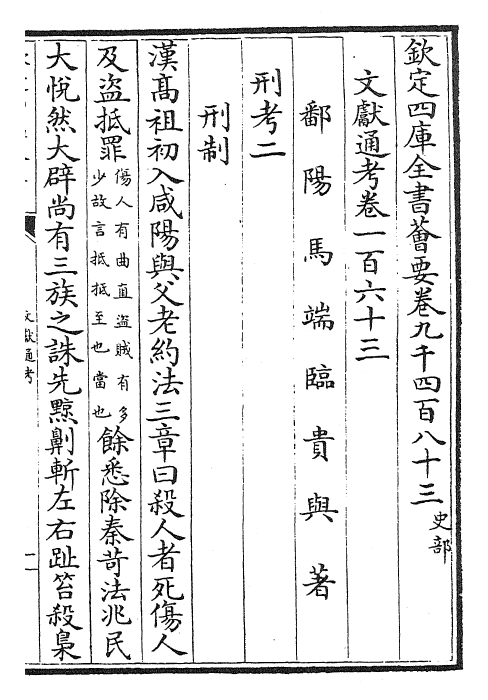 欽定四庫全書薈要卷九千四百八十三 史部
文獻通考卷一百六十三
鄱陽馬端臨貴與著
刑考二
刑制
漢髙祖初入咸陽與父老約法三章曰殺人者死傷人
及盗抵罪傷人有曲直盗賊有多少故言抵抵至也當也餘悉除秦苛法兆民
大悅然大辟尚有三族之誅先黥劓斬左右趾笞殺梟
文獻通考